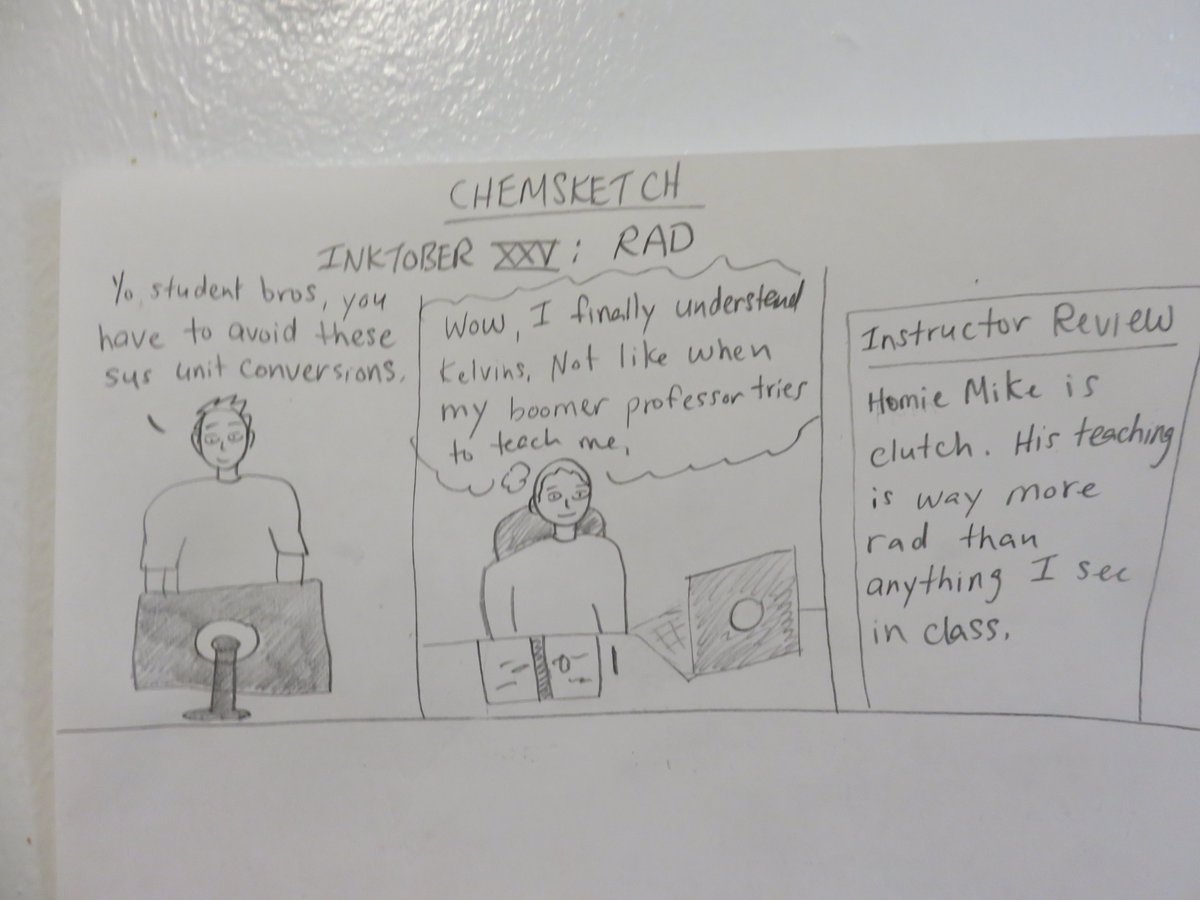 CHEMSKETCH
INKTOBER XXV: RAD
Yo, student bros, you
have to avoid these
sus unit conversions.
Wow, I finally understand
Kelvins. Not like when
my boomer professor tries
to teach me.
Instructor Review
Homie Mike is
clutch. His teaching
is way more
rad than
anything I see
in class.